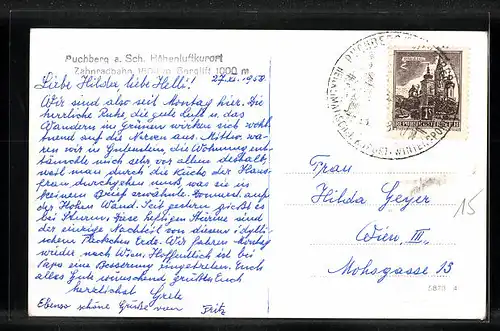 Puchberg a. Sch. Höhenluftkurort
Zahnradbahn, Berglift 1000 m
27.VI.1958
Liebe Hilda, liebe Helli!
Wir sind also seit Montag hier. Die
herrliche Ruhe, die gute Luft u. das
Wandern im Grünen wirken sich wohl-
tuend auf die Nerven aus. Mittw. wa-
ren wir in Gutenstein, die Wohnung ent-
täuschte mich sehr, vor allem deshalb,
weil man durch die Küche der Haus-
frau durchgehen muß, was sie in
keinem Brief erwähnte. Donnerst. auf
der Hohen Wand. Seit gestern gießt es
bei Sturm. Diese heftigen Stürme sind
der einzige Nachteil von diesem idylli-
schen Fleckchen Erde. Wir fahren Montag
wieder nach Wien. Hoffentlich ist bei
Papa eine Besserung eingetreten. Euch
alles Gute wünschend grüßt Euch
herzlichst Grete
Ebenso schöne Grüße von Fritz
PUCHBERG
WINTERSPORT
REPUBLIK ÖSTERREICH
Frau
Hilda Geyer
Wien, III.
Mohsgasse 13
15